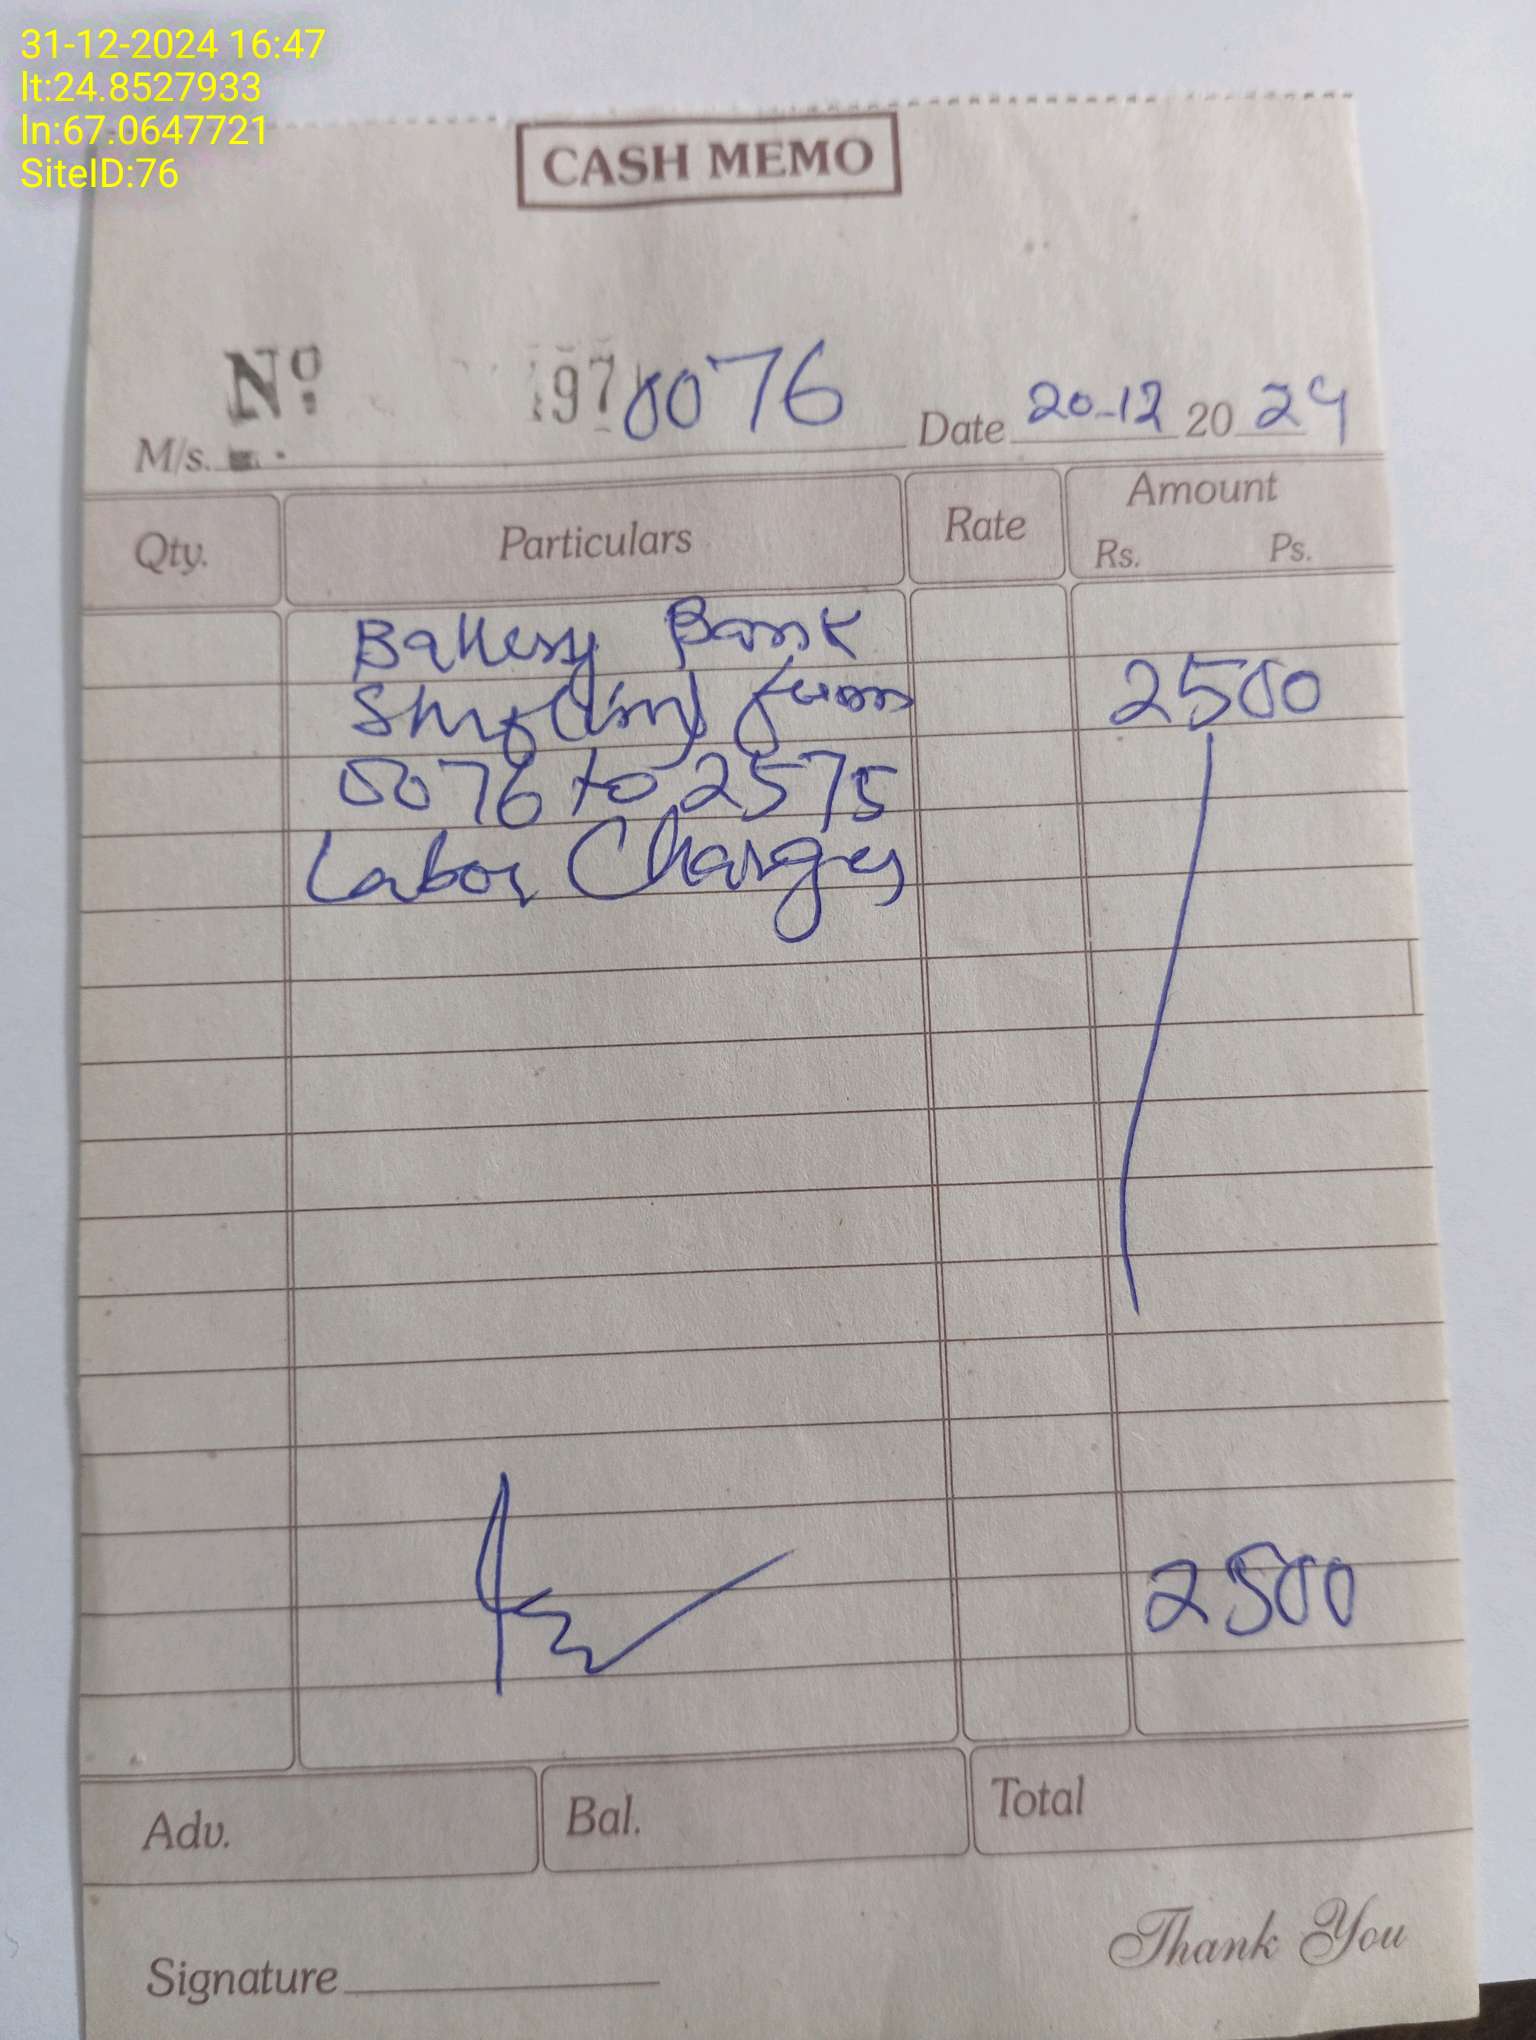 31-12-2024 16:47
lt:24.8527933
ln:67.0647721
SiteID:76
CASH MEMO
Nº 197 0076
M/s. Date 20-12 2024
Qty. Particulars Rate Amount
Rs. Ps.
Battery Bank
Shifting from 2500
0076 to 2575
Labor Charges
2500
Adv. Bal. Total
Thank You
Signature